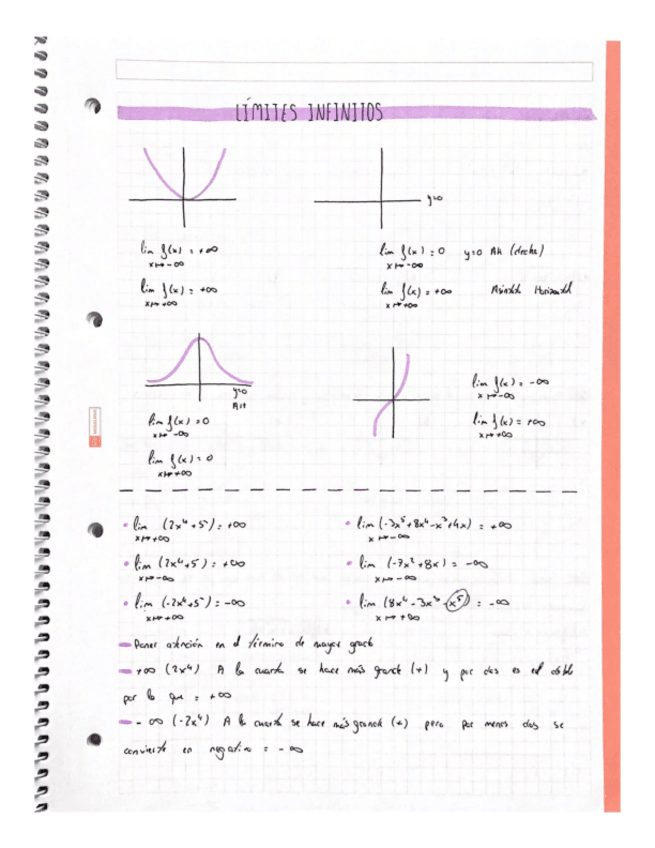 LÍMITES INFINITOS
y=0
lim f(x) = +∞
x↦-∞
lim f(x) = +∞
x↦+∞
lim f(x) = 0 y=0 AH (decha)
x↦-∞
lim f(x) = +∞ Asíntota Horizontal
x↦+∞
y=0
AH
lim f(x) = 0
x↦-∞
lim f(x) = 0
x↦+∞
lim f(x) = -∞
x↦-∞
lim f(x) = +∞
x↦+∞
• lim (2x⁴+5) = +∞
x↦+∞
• lim (2x⁴+5) = +∞
x↦-∞
• lim (-2x⁴+5) = -∞
x↦+∞
• lim (-3x⁵+8x⁴-x³+4x) = +∞
x↦-∞
• lim (-7x²+8x) = -∞
x↦-∞
• lim (8x⁴-3x³-x⁵) = -∞
x↦+∞
- Poner atención en el término de mayor grado
- +∞ (2x⁴) A la cuarta se hace más grande (+) y por dos es el doble
por lo que = +∞
- -∞ (-2x⁴) A la cuarta se hace más grande (+) pero por menos dos se
convierte en negativo = -∞